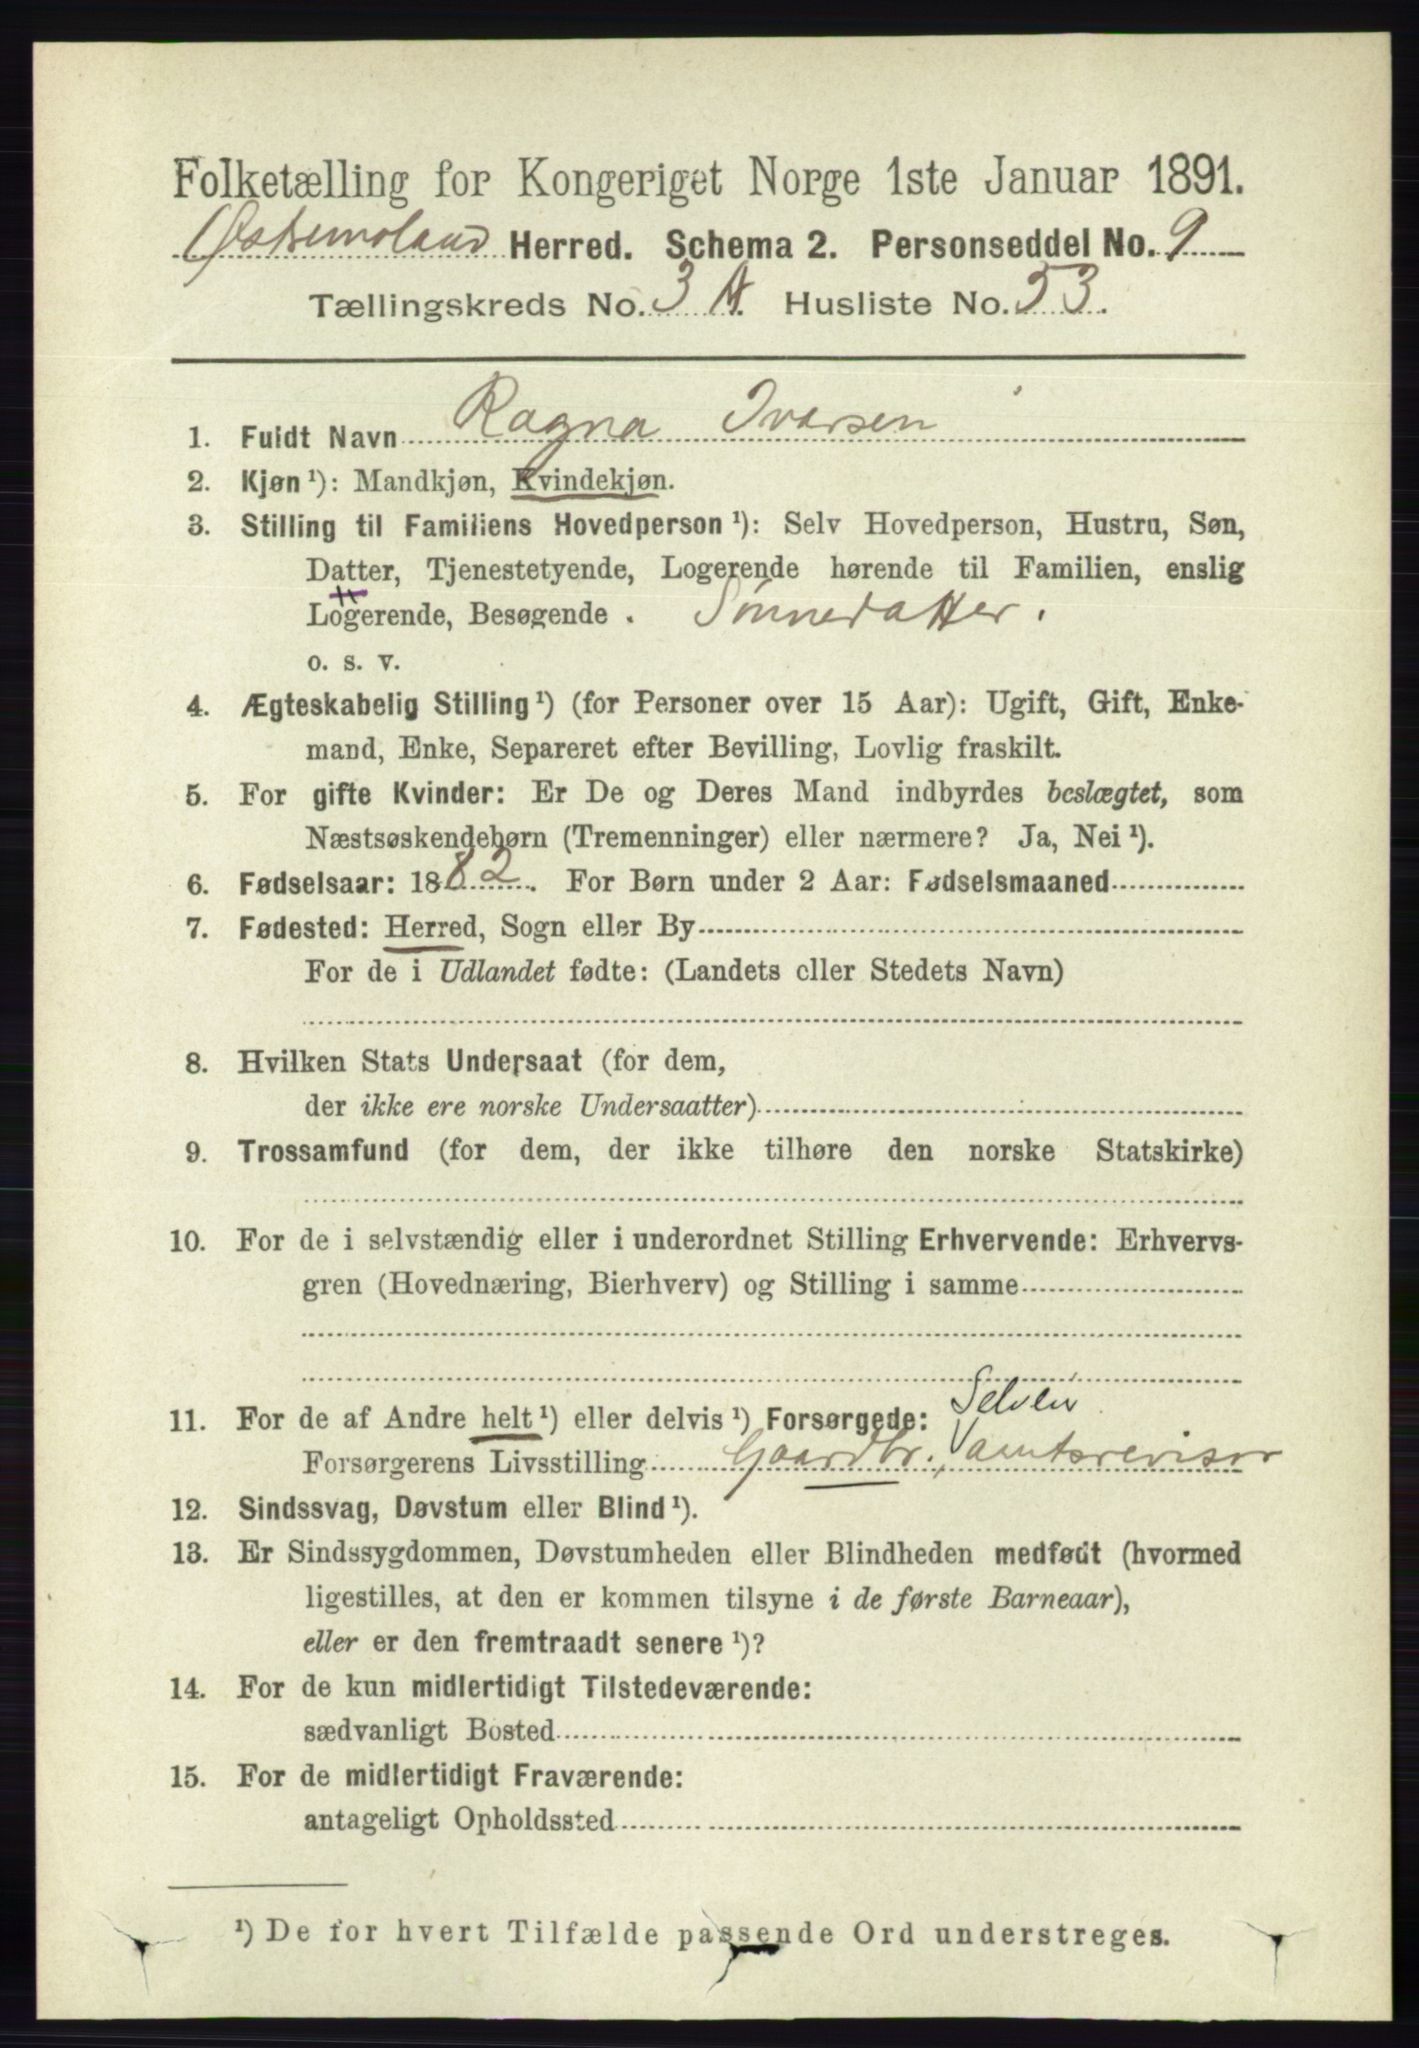 Folketælling for Kongeriget Norge 1ste Januar 1891.
Østremoland Herred. Schema 2. Personseddel No. 9
Tællingskreds No. 3 A. Husliste No. 53.
1. Fuldt Navn Ragna Ivarsen
2. Kjøn ¹): Mandkjøn, Kvindekjøn.
3. Stilling til Familiens Hovedperson ¹): Selv Hovedperson, Hustru, Søn,
Datter, Tjenestetyende, Logerende hørende til Familien, enslig
Logerende, Besøgende . Sønnedatter.
o. s. v.
4. Ægteskabelig Stilling ¹) (for Personer over 15 Aar): Ugift, Gift, Enke-
mand, Enke, Separeret efter Bevilling, Lovlig fraskilt.
5. For gifte Kvinder: Er De og Deres Mand indbyrdes beslægtet, som
Næstsøskendebørn (Tremenninger) eller nærmere? Ja, Nei ¹).
6. Fødselsaar: 1882. For Børn under 2 Aar: Fødselsmaaned
7. Fødested: Herred, Sogn eller By
For de i Udlandet fødte: (Landets eller Stedets Navn)
8. Hvilken Stats Undersaat (for dem,
der ikke ere norske Undersaatter)
9. Trossamfund (for dem, der ikke tilhøre den norske Statskirke)
10. For de i selvstændig eller i underordnet Stilling Erhvervende: Erhvervs-
gren (Hovednæring, Bierhverv) og Stilling i samme
11. For de af Andre helt ¹) eller delvis ¹) Forsørgede:
Forsørgerens Livsstilling Gaardbr., amtsrevisor
12. Sindssvag, Døvstum eller Blind ¹).
13. Er Sindssygdommen, Døvstumheden eller Blindheden medfødt (hvormed
ligestilles, at den er kommen tilsyne i de første Barneaar),
eller er den fremtraadt senere ¹)?
14. For de kun midlertidigt Tilstedeværende:
sædvanligt Bosted
15. For de midlertidigt Fraværende:
antageligt Opholdssted
¹) De for hvert Tilfælde passende Ord understreges.